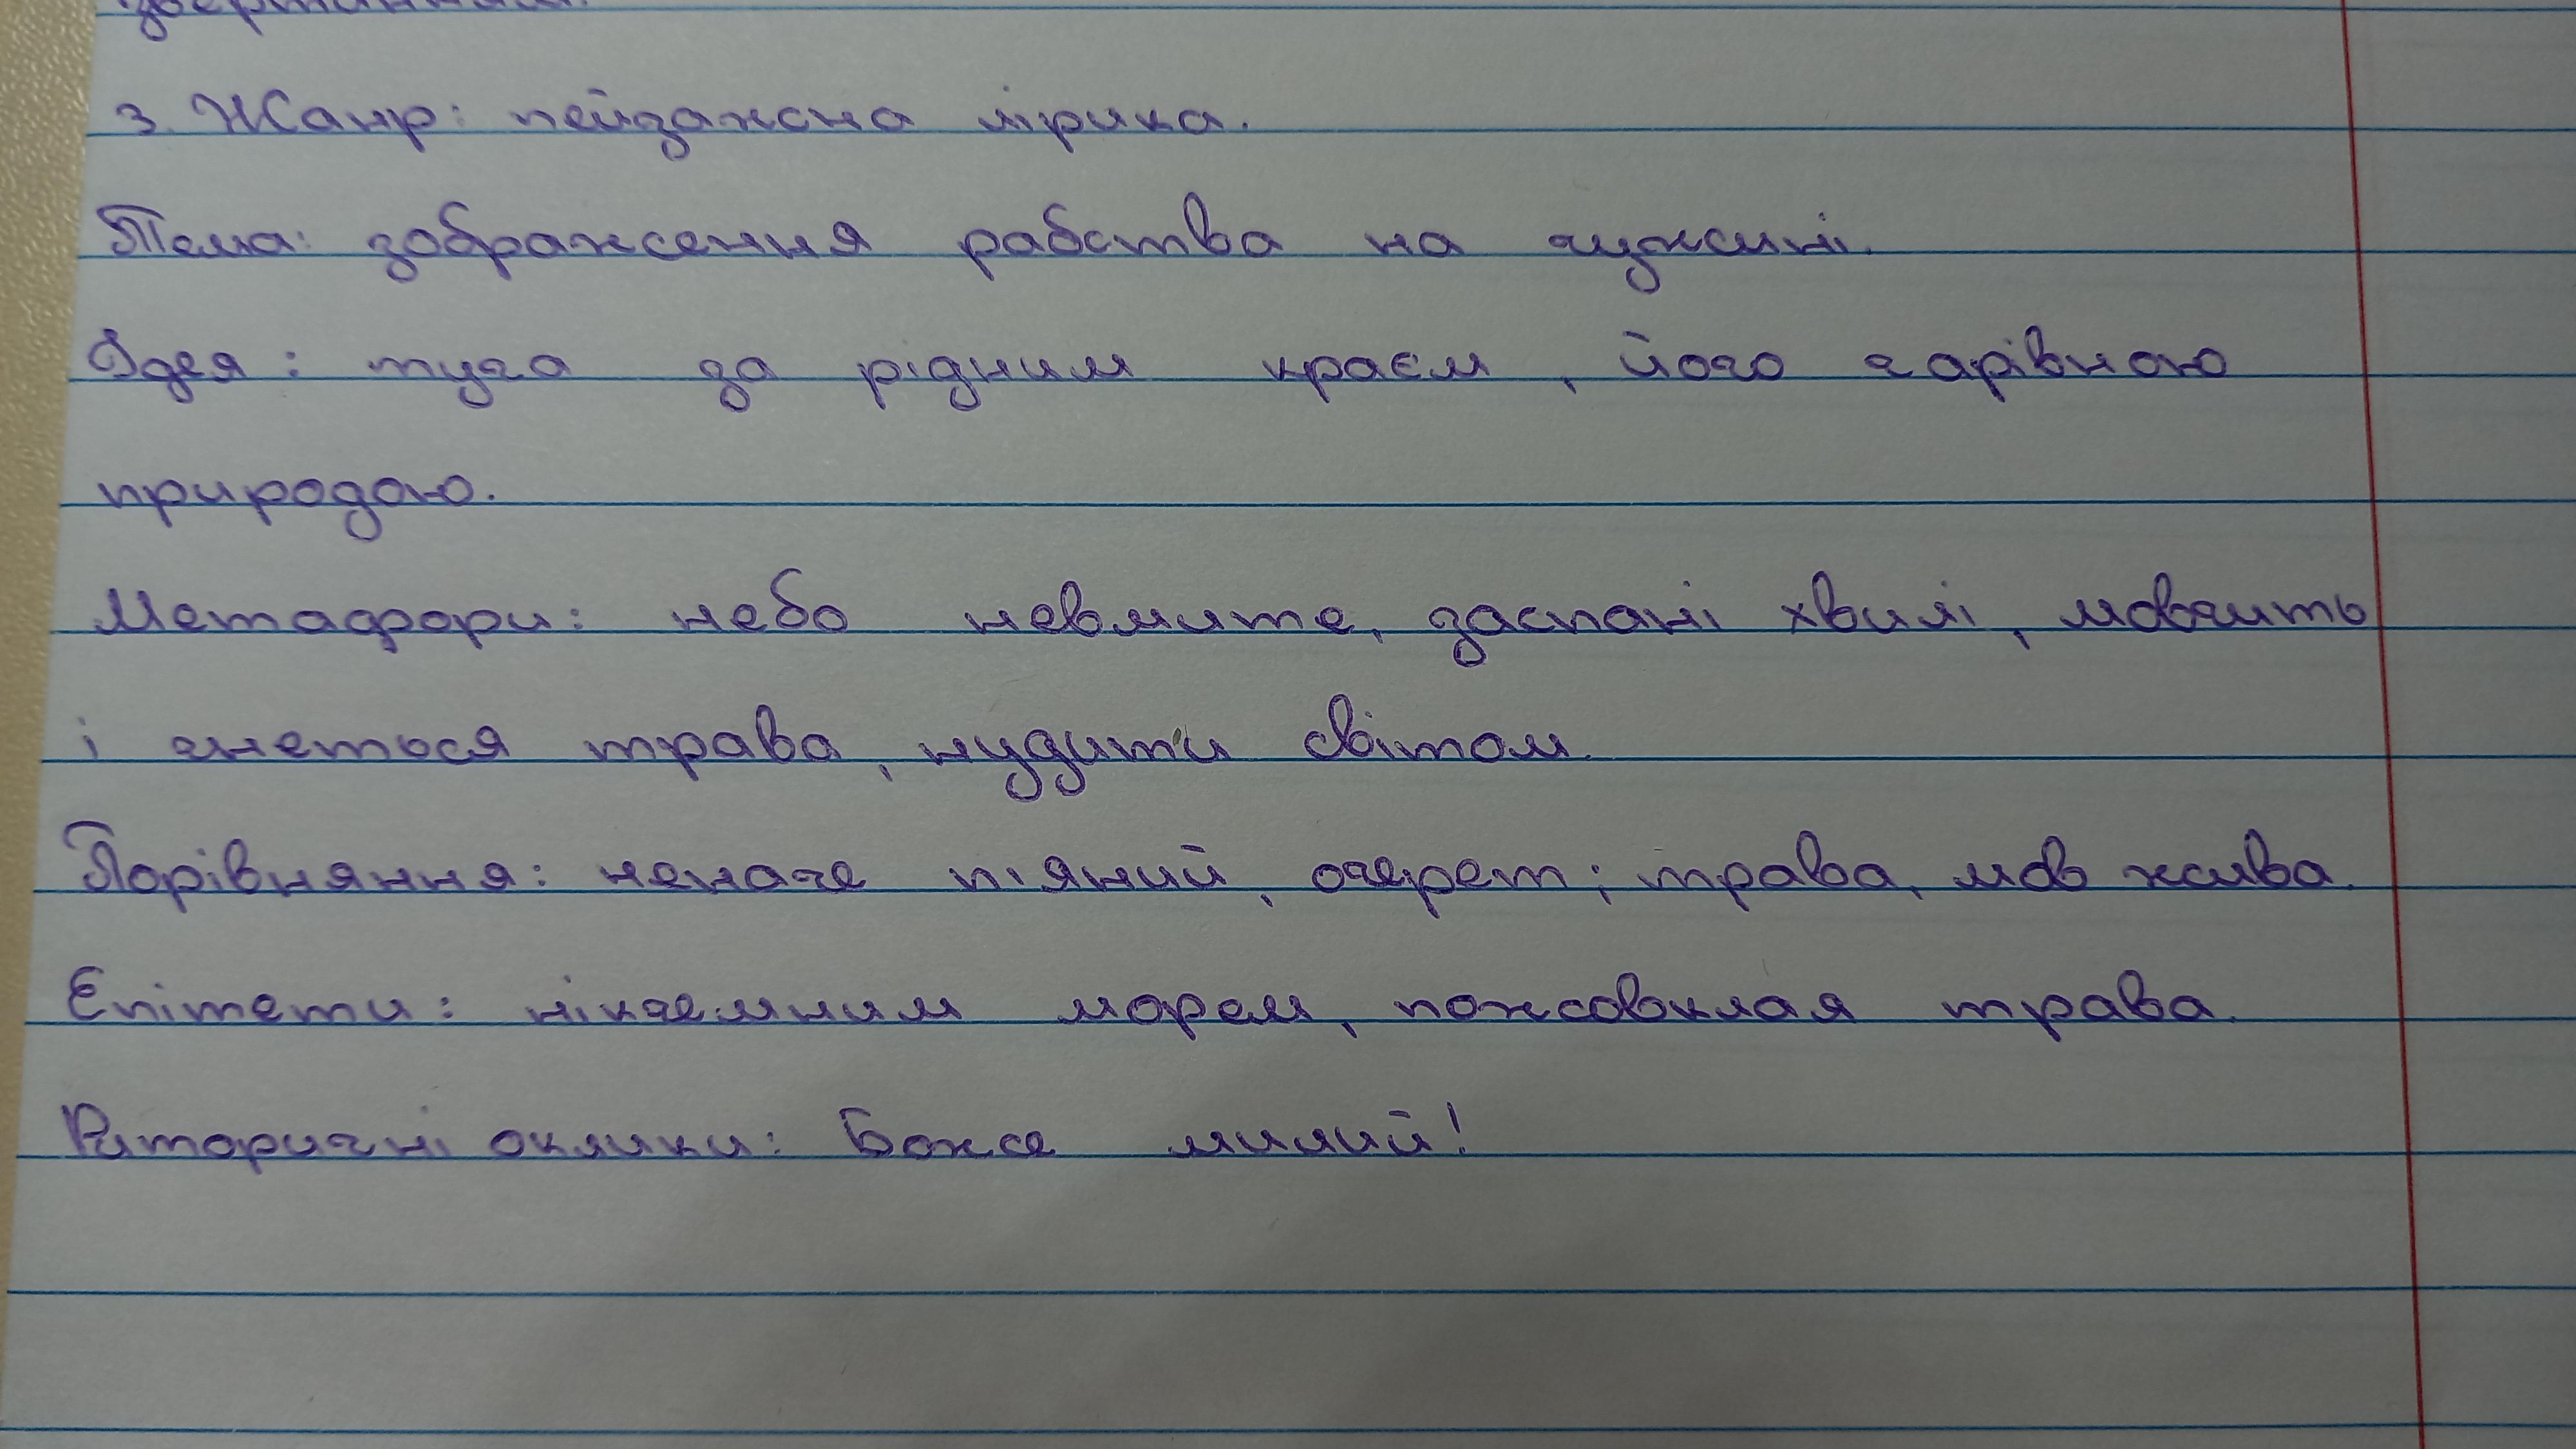 3. Жанр: пейзажна лірика.
Тема: зображення рабства на чужині.
Ідея: туга за рідним краєм, його чарівною
природою.
Метафори: небо невмите, заспані хвилі, мовчить
і гнеться трава, нудити світом.
Порівняння: неначе п'яний, очерет; трава, мов жива.
Епітети: нікчемним морем, пожовклая трава.
Риторичні оклики: Боже милий!